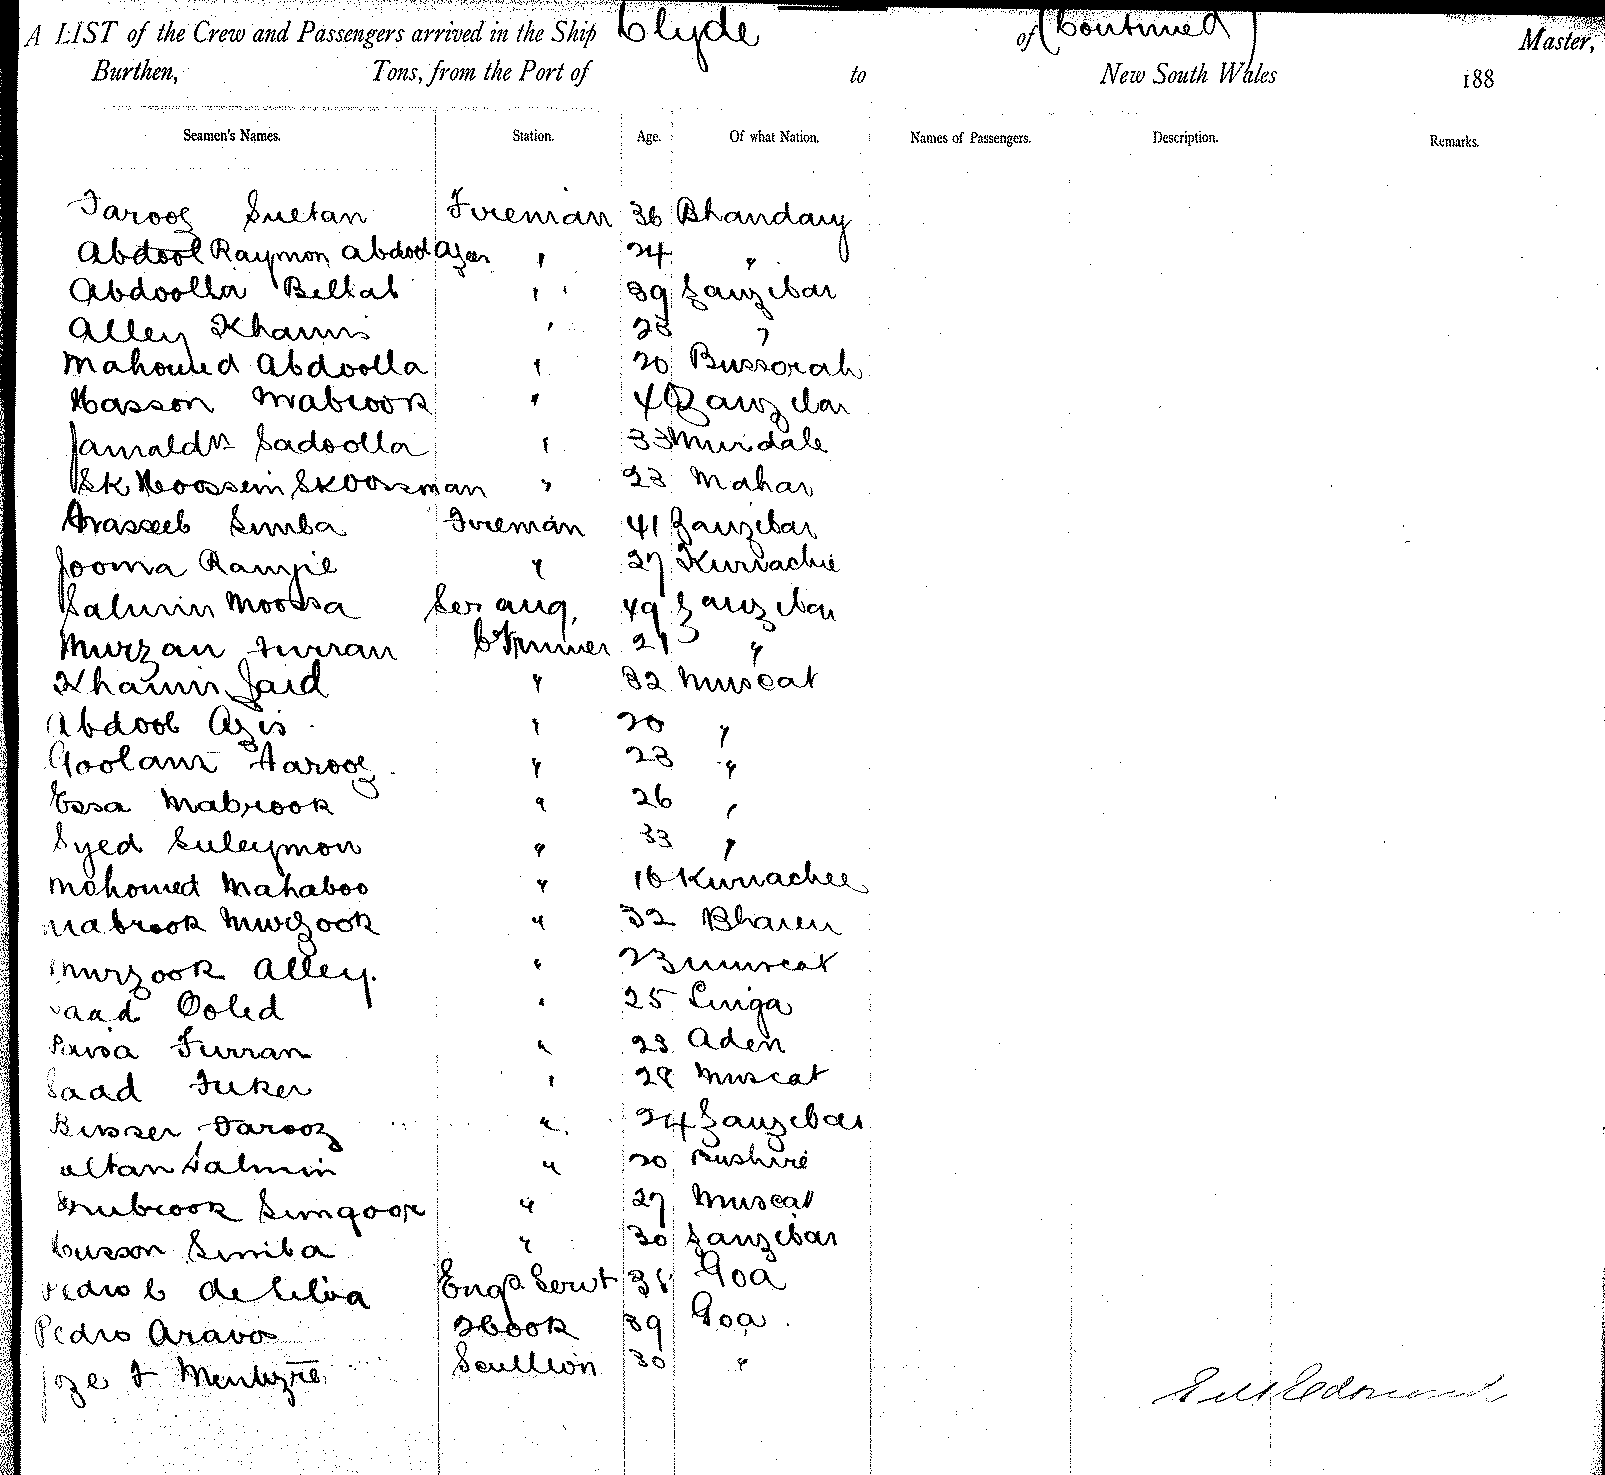 A LIST of the Crew and Passengers arrived in the Ship Clyde of (Continued) Master,
Burthen, Tons, from the Port of to New South Wales 188
Seamen's Names. Station. Age. Of what Nation. Names of Passengers. Description. Remarks.
Farooz Sultan Fireman 36 Bhandary
Abdool Raymon Abdool Azer " 24 "
Abdoolla Bellal " 39 Zanzibar
Alley Khamis " 28 "
Mahomed Abdoolla " 20 Bussorah
Hasson Mabrook " 40 Zanzibar
Jamaldn Sadoolla " 33 Murdale
Sk Hoossein Sk Oosman " 23 Mahar
Nasseeb Simba Fireman 41 Zanzibar
Jooma Ramjie " 27 Kurrachie
Salmin Moossa Serang 49 Zanzibar
Murzan Furran C Trimmer 21 "
Khamis Jaid " 32 Muscat
Abdool Azis " 20 "
Goolam Farooz " 23 "
Essa Mabrook " 26 "
Syed Suleymon " 33 "
Mahomed Mahaboo " 16 Kurrachee
Mabrook Murzook " 32 Bharen
Murzook Alley. " 23 Muscat
Saad Ooled " 25 Linga
Furran " 23 Aden
Saad Fuker " 28 Muscat
Farooz " 24 Zanzibar
Sultan Salmin " 20 Bushire
Mubrook Simgoor " 27 Muscat
Simba " 30 Zanzibar
Pedro C de Silva Engrs Servt 36 Goa
Pedro Aravo Cook 39 Goa
Joze F Scullion 30 "